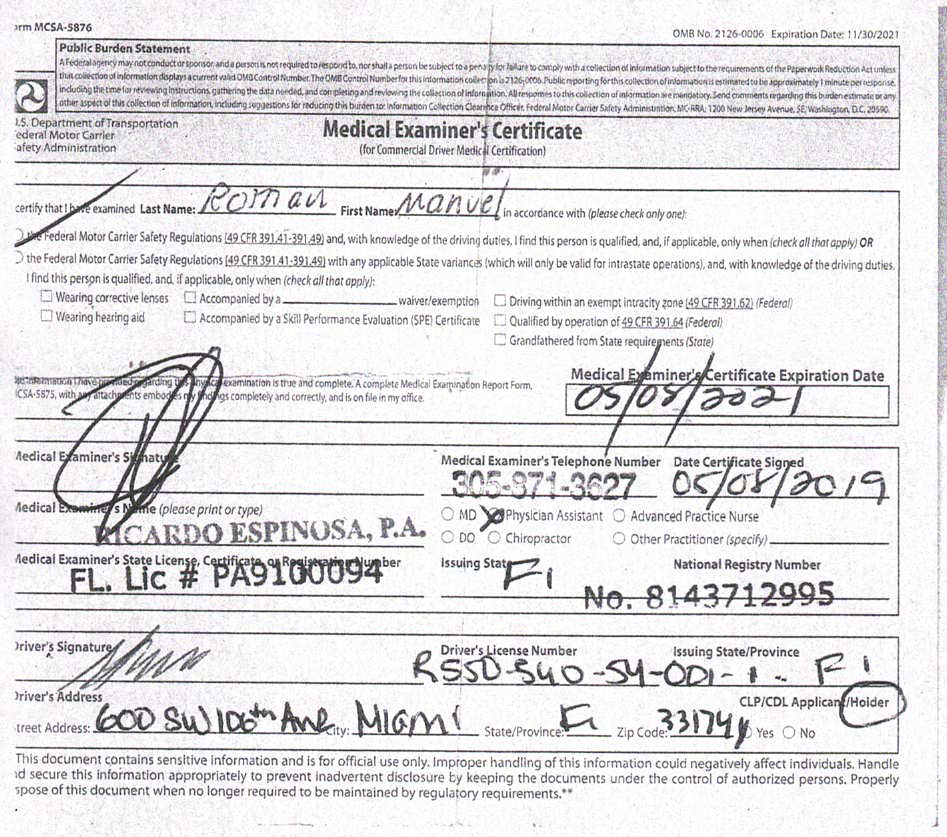 orm MCSA-5876
OMB No. 2126-0006 Expiration Date: 11/30/2021
Public Burden Statement
A Federal agency may not conduct or sponsor, and a person is not required to respond to, nor shall a person be subject to a penalty for failure to comply with a collection of information subject to the requirements of the Paperwork Reduction Act unless
this collection of information displays a current valid OMB Control Number. The OMB Control Number for this information collection is 2126-0006. Public reporting for this collection of information is estimated to be approximately 1 minute per response,
including the time for reviewing instructions, gathering the data needed, and completing and reviewing the collection of information. All responses to this collection of information are mandatory. Send comments regarding this burden estimate or any
other aspect of this collection of information, including suggestions for reducing this burden to: Information Collection Clearance Officer, Federal Motor Carrier Safety Administration, MC-RRA, 1200 New Jersey Avenue, SE, Washington, D.C. 20590.
U.S. Department of Transportation
ederal Motor Carrier
afety Administration
Medical Examiner's Certificate
(for Commercial Driver Medical Certification)
certify that I have examined Last Name: Roman First Name: Manuel in accordance with (please check only one):
the Federal Motor Carrier Safety Regulations (49 CFR 391.41-391.49) and, with knowledge of the driving duties, I find this person is qualified, and, if applicable, only when (check all that apply) OR
the Federal Motor Carrier Safety Regulations (49 CFR 391.41-391.49) with any applicable State variances (which will only be valid for intrastate operations), and, with knowledge of the driving duties,
I find this person is qualified, and, if applicable, only when (check all that apply):
Wearing corrective lenses Accompanied by a waiver/exemption Driving within an exempt intracity zone (49 CFR 391.62) (Federal)
Wearing hearing aid Accompanied by a Skill Performance Evaluation (SPE) Certificate Qualified by operation of 49 CFR 391.64 (Federal)
Grandfathered from State requirements (State)
information I have provided regarding this physical examination is true and complete. A complete Medical Examination Report Form,
CSA-5875, with any attachments embodies my findings completely and correctly, and is on file in my office.
Medical Examiner's Certificate Expiration Date
05/08/2021
Medical Examiner's Signature
Medical Examiner's Telephone Number Date Certificate Signed
305-871-3627 05/08/2019
Medical Examiner's Name (please print or type)
RICARDO ESPINOSA, P.A.
MD Physician Assistant Advanced Practice Nurse
DO Chiropractor Other Practitioner (specify)
Medical Examiner's State License, Certificate, or Registration Number
FL. Lic # PA9100094
Issuing State Fl
National Registry Number
No. 8143712995
Driver's Signature
Driver's License Number Issuing State/Province
R550-540-54-001-1- Fl
Driver's Address
CLP/CDL Applicant/Holder
treet Address: 600 SW 106th Ave City: Miami State/Province: Fl Zip Code: 33174 Yes No
This document contains sensitive information and is for official use only. Improper handling of this information could negatively affect individuals. Handle
nd secure this information appropriately to prevent inadvertent disclosure by keeping the documents under the control of authorized persons. Properly
spose of this document when no longer required to be maintained by regulatory requirements.**